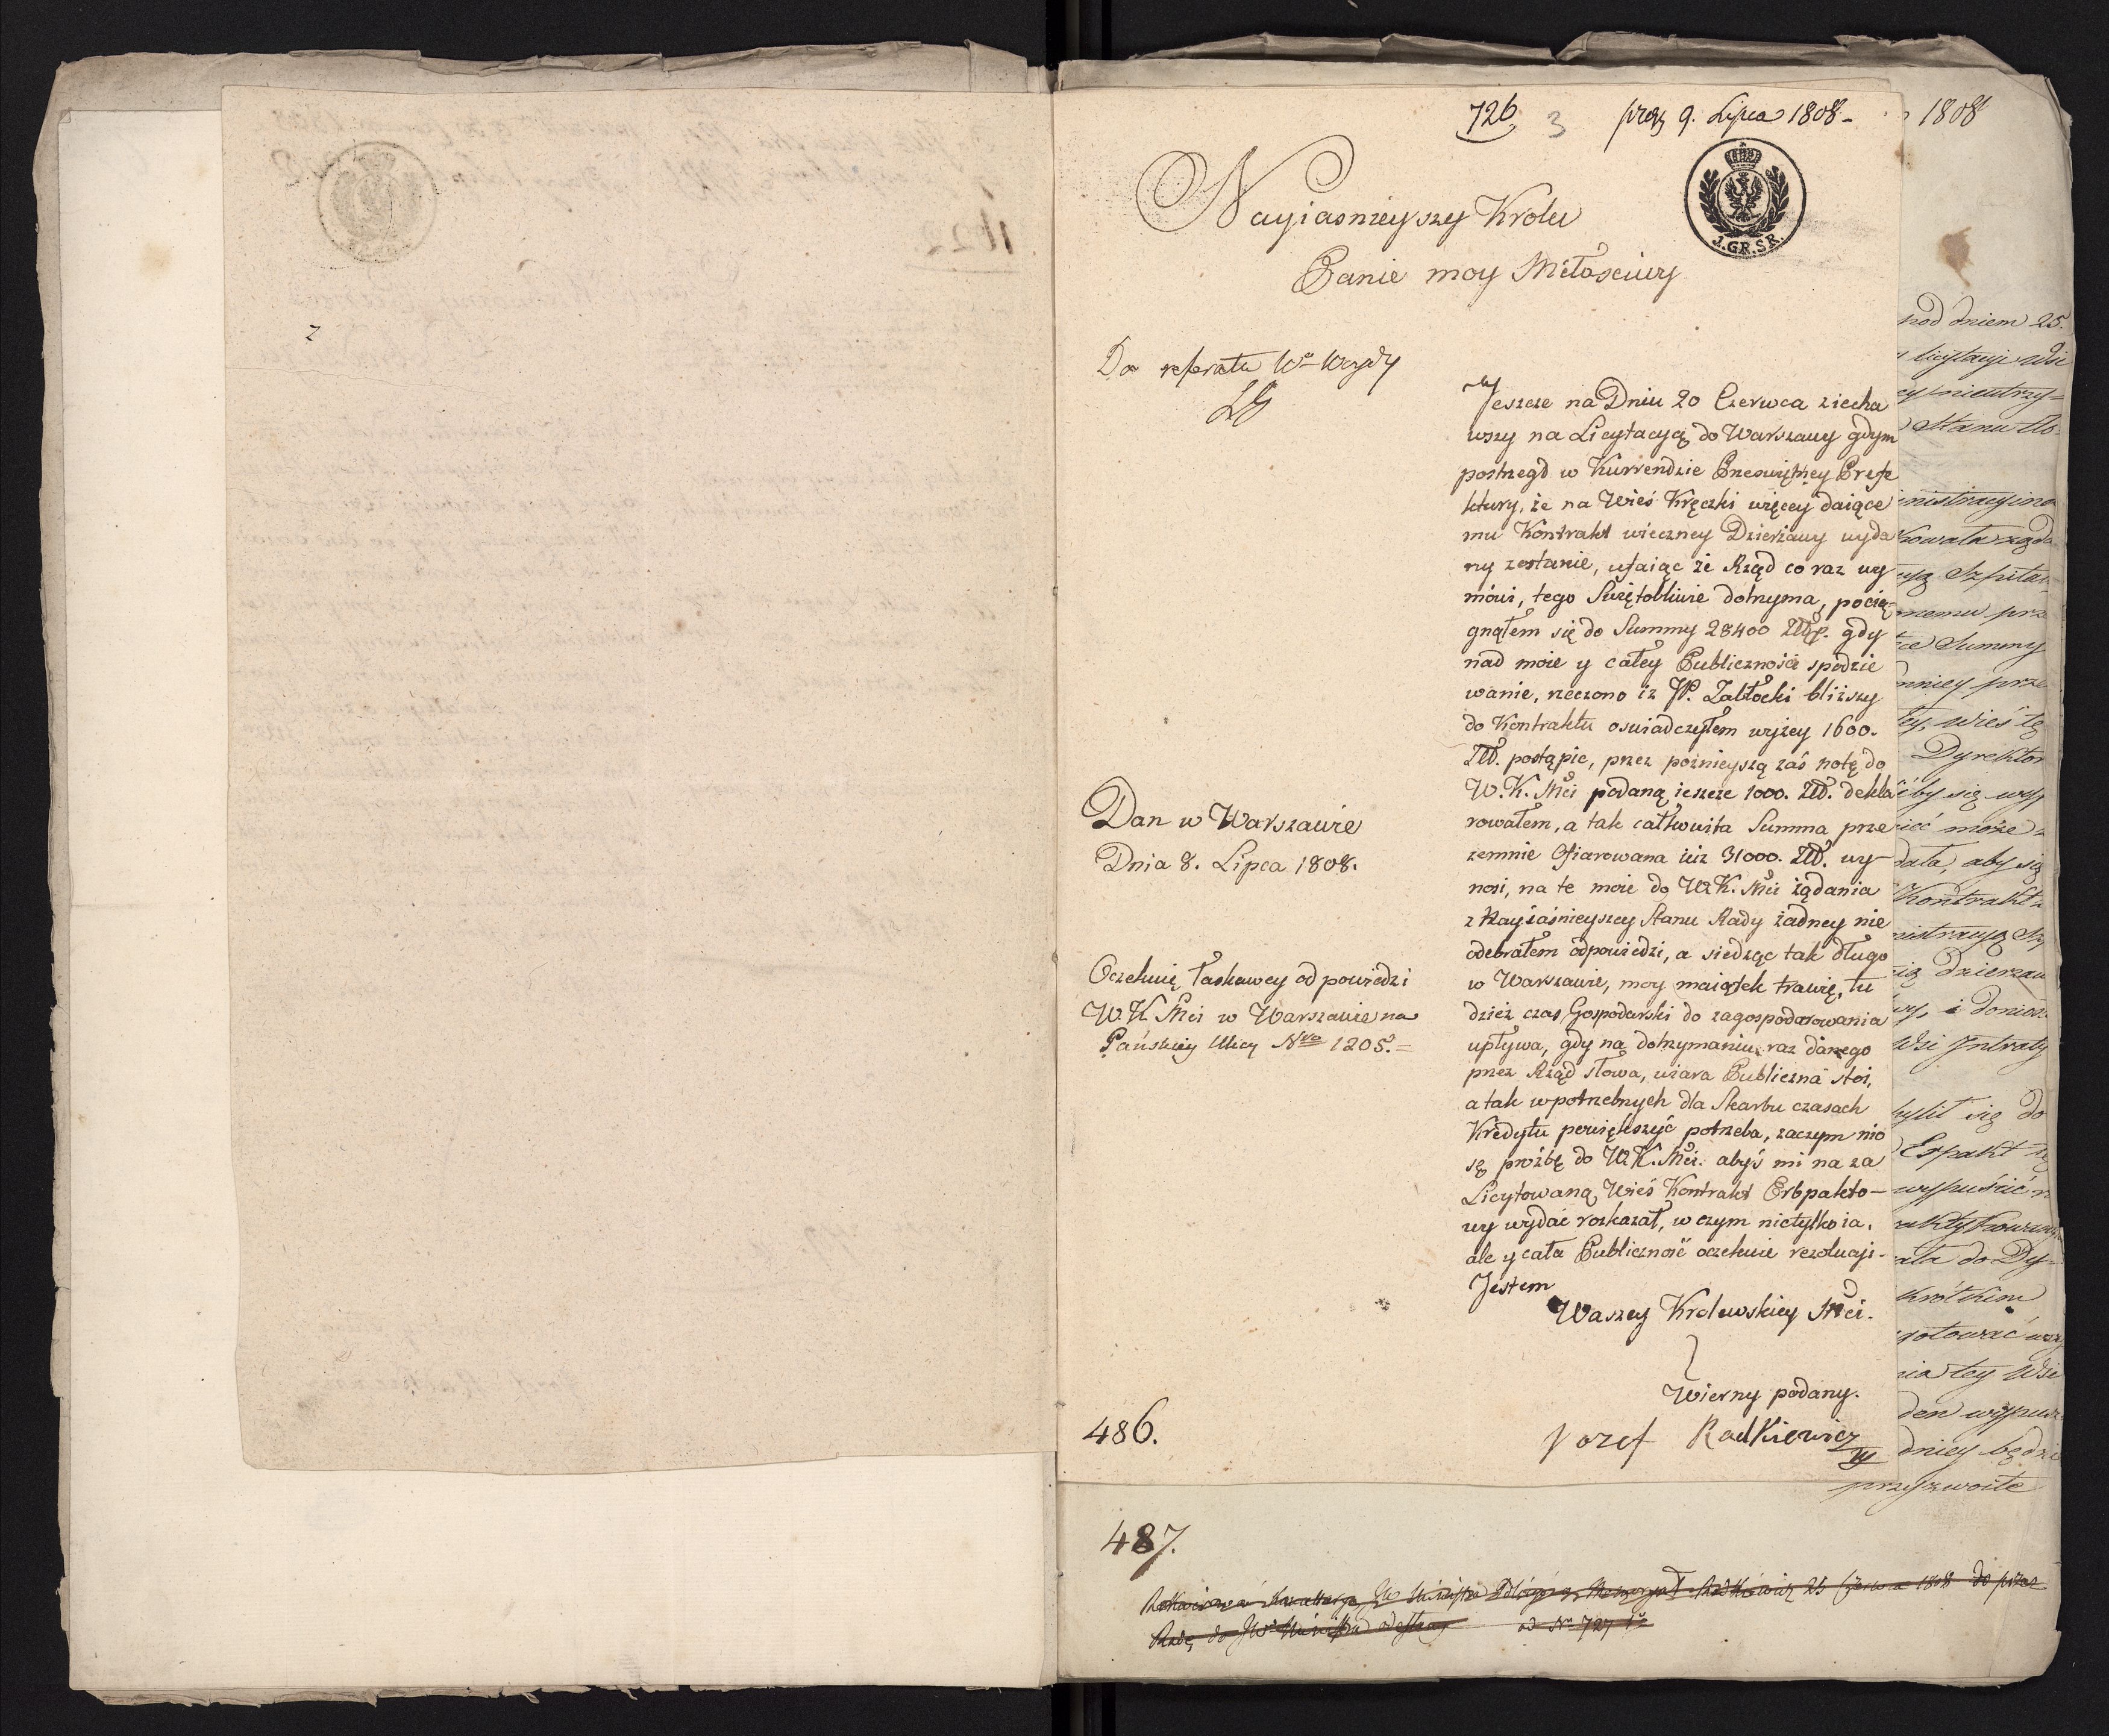 726. 3 prez 9. Lipca 1808 -
1808
J.GR.SR.
Nayiasnieyszy Krolu
Panie moy Miłościwy
2
Do referatu
Jeszcze na Dniu 20 Czerwca ziecha
wszy na Licytacyą do Warszawy gdym
postrzegł w Kurrendzie Przeświętney Prefe
ktury, że na Wieś Kręczki więcey daiące
mu Kontrakt wieczney Dzierżawy wyda
ny zostanie, ufaiąc że Rząd co raz wy
mówi, tego Swiętobliwie dotrzyma, pocią-
gnąłem się do Summy 28400 Złłp. gdy
nad moie y całey Publiczności spodzie
wanie, rzeczono iz W. Zabłocki bliższy
do Kontraktu oswiadczyłem wyżey 1600.
Złł. postąpic, przez poznieyszą zaś notę do
W.K. Mci podaną ieszcze 1000. Złł. dekla
rowałem, a tak całkowita Summa prze
zemnie Ofiarowana iuż 31000. Złł. wy-
nosi, na te moie do W.K. Mci żądania
z Nayiaśnieyszey Stanu Rady żadney nie
odebrałem odpowiedzi, a siedząc tak długo
w Warszawie, moy maiątek trawię, tu
dzież czas Gospodarski do zagospodarowania
upływa, gdy na dotrzymaniu raz danego
przez Rząd słowa, wiara Publiczna stoi,
a tak w potrzebnych dla Skarbu czasach
Kredytu powiększyć potrzeba, zaczym nio
sę proźbę do W.K. Mci. abyś mi na za
Licytowaną Wieś Kontrakt Erbpakto-
wy wydać rozkazał, w czym nietylko ia,
ale y cała Publiczność oczekuie rezolucji-
Jestem
Waszey Krolewskiey Mci.
Wierny podany.
Jozef Radkiewicz
Dan w Warszawie
Dnia 8. Lipca 1808.
Oczekuię łaskawey odpowiedzi
W.K Mci w Warszawie na
Pańskiey Ulicy Nro 1205. =
486.
pod dniem 25.
licytacyi Wsi
Stanu
Szpital
Summy
wieś tę
Dyrektor
by się
może
aby się
Kontrakt
i donios
Wsi Intraty
się do
wypuścić
do Dy-
krótkim
gotować
tey Wsi
przyzwoite
487.
25 Czerwca 1808
ad Nro 727